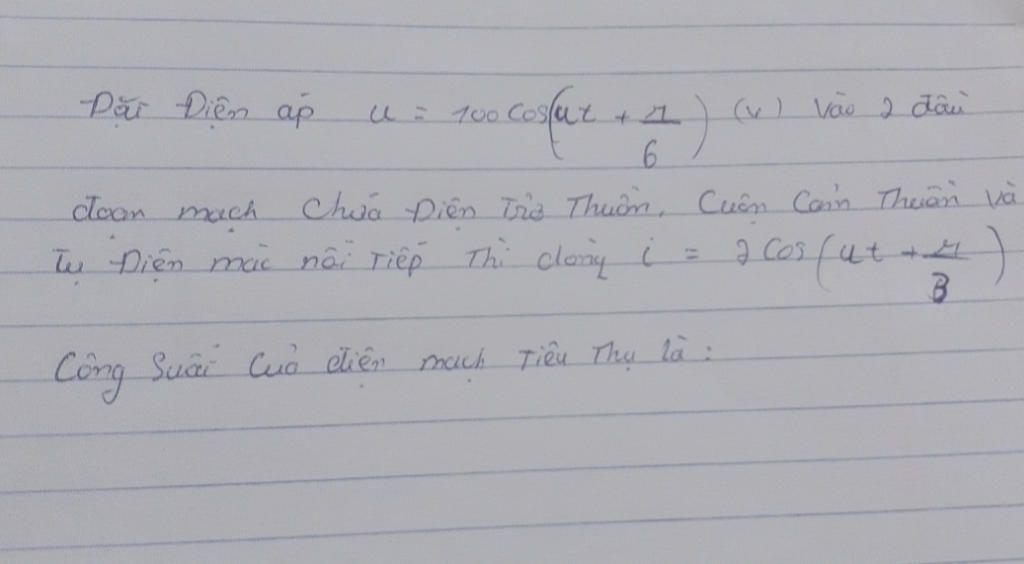 Đặt Điện áp u = 100 cos(ωt + π/6) (v) vào 2 đầu
đoạn mạch chứa Điện Trở Thuần, Cuộn Cảm Thuần và
Tụ Điện mắc nối Tiếp Thì dòng i = 2 cos(ωt + π/3)
Công Suất Của điện mạch Tiêu Thụ là :